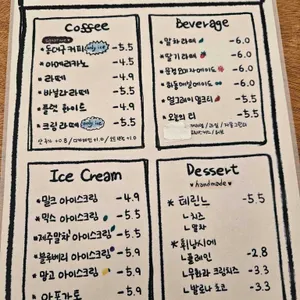 Coffee
• 동대구 커피 only ice -5.5
• 아메리카노 -4.5
• 라떼 -4.9
• 바닐라 라떼 -5.5
• 플랫 화이트 -4.9
• 크림 라떼 only ice -5.5
Beverage
• 말차 라떼 -6.0
• 딸기 라떼 -6.0
-6.0
-6.0
• 얼그레이 밀크티 -5.5
• 오늘의 티 -5.5
Ice Cream
• 밀크 아이스크림 -4.9
• 믹스 아이스크림 -5.5
• 제주말차 아이스크림 -5.5
• 블루베리 아이스크림 -5.9
• 망고 아이스크림 -5.9
• 아포가토 -5.9
Dessert
♥ Handmade ♥
* 테린느 -5.5
ㄴ치즈
ㄴ말차
* 휘낭시에
ㄴ플레인 -2.8
ㄴ무화과 크림치즈 -3.3
ㄴ발로나 초코 -3.3